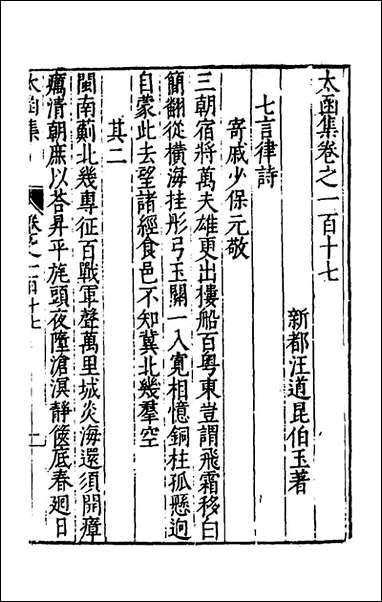 太函集卷之一百十七
新都汪道昆伯玉著
七言律詩
寄戚少保元敬
三朝宿將萬夫雄更出摟船百粤東豈謂飛霜移白
簡翻從橫海挂彤弓玉關一入寛相憶銅柱孤懸迥
自蒙此去望諸經食邑不知冀北幾羣空
其二
閩南薊北幾專征百戰軍聲萬里城炎海還須開瘴
癘清朝庶以荅昇平旄頭夜墮滄溟靜篋底春廻日
太函集
卷之一百十七
一